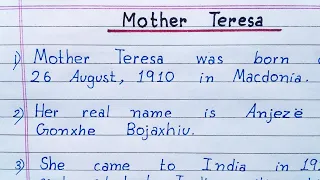 Mother Teresa
1) Mother Teresa was born
26 August, 1910 in Macdonia.
2) Her real name is Anjezë
Gonxhe Bojaxhiu.
3) She came to India in 19